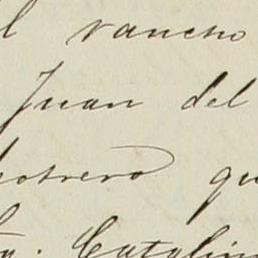 l rancho
Juan del
potrero qu
ta. Catalin